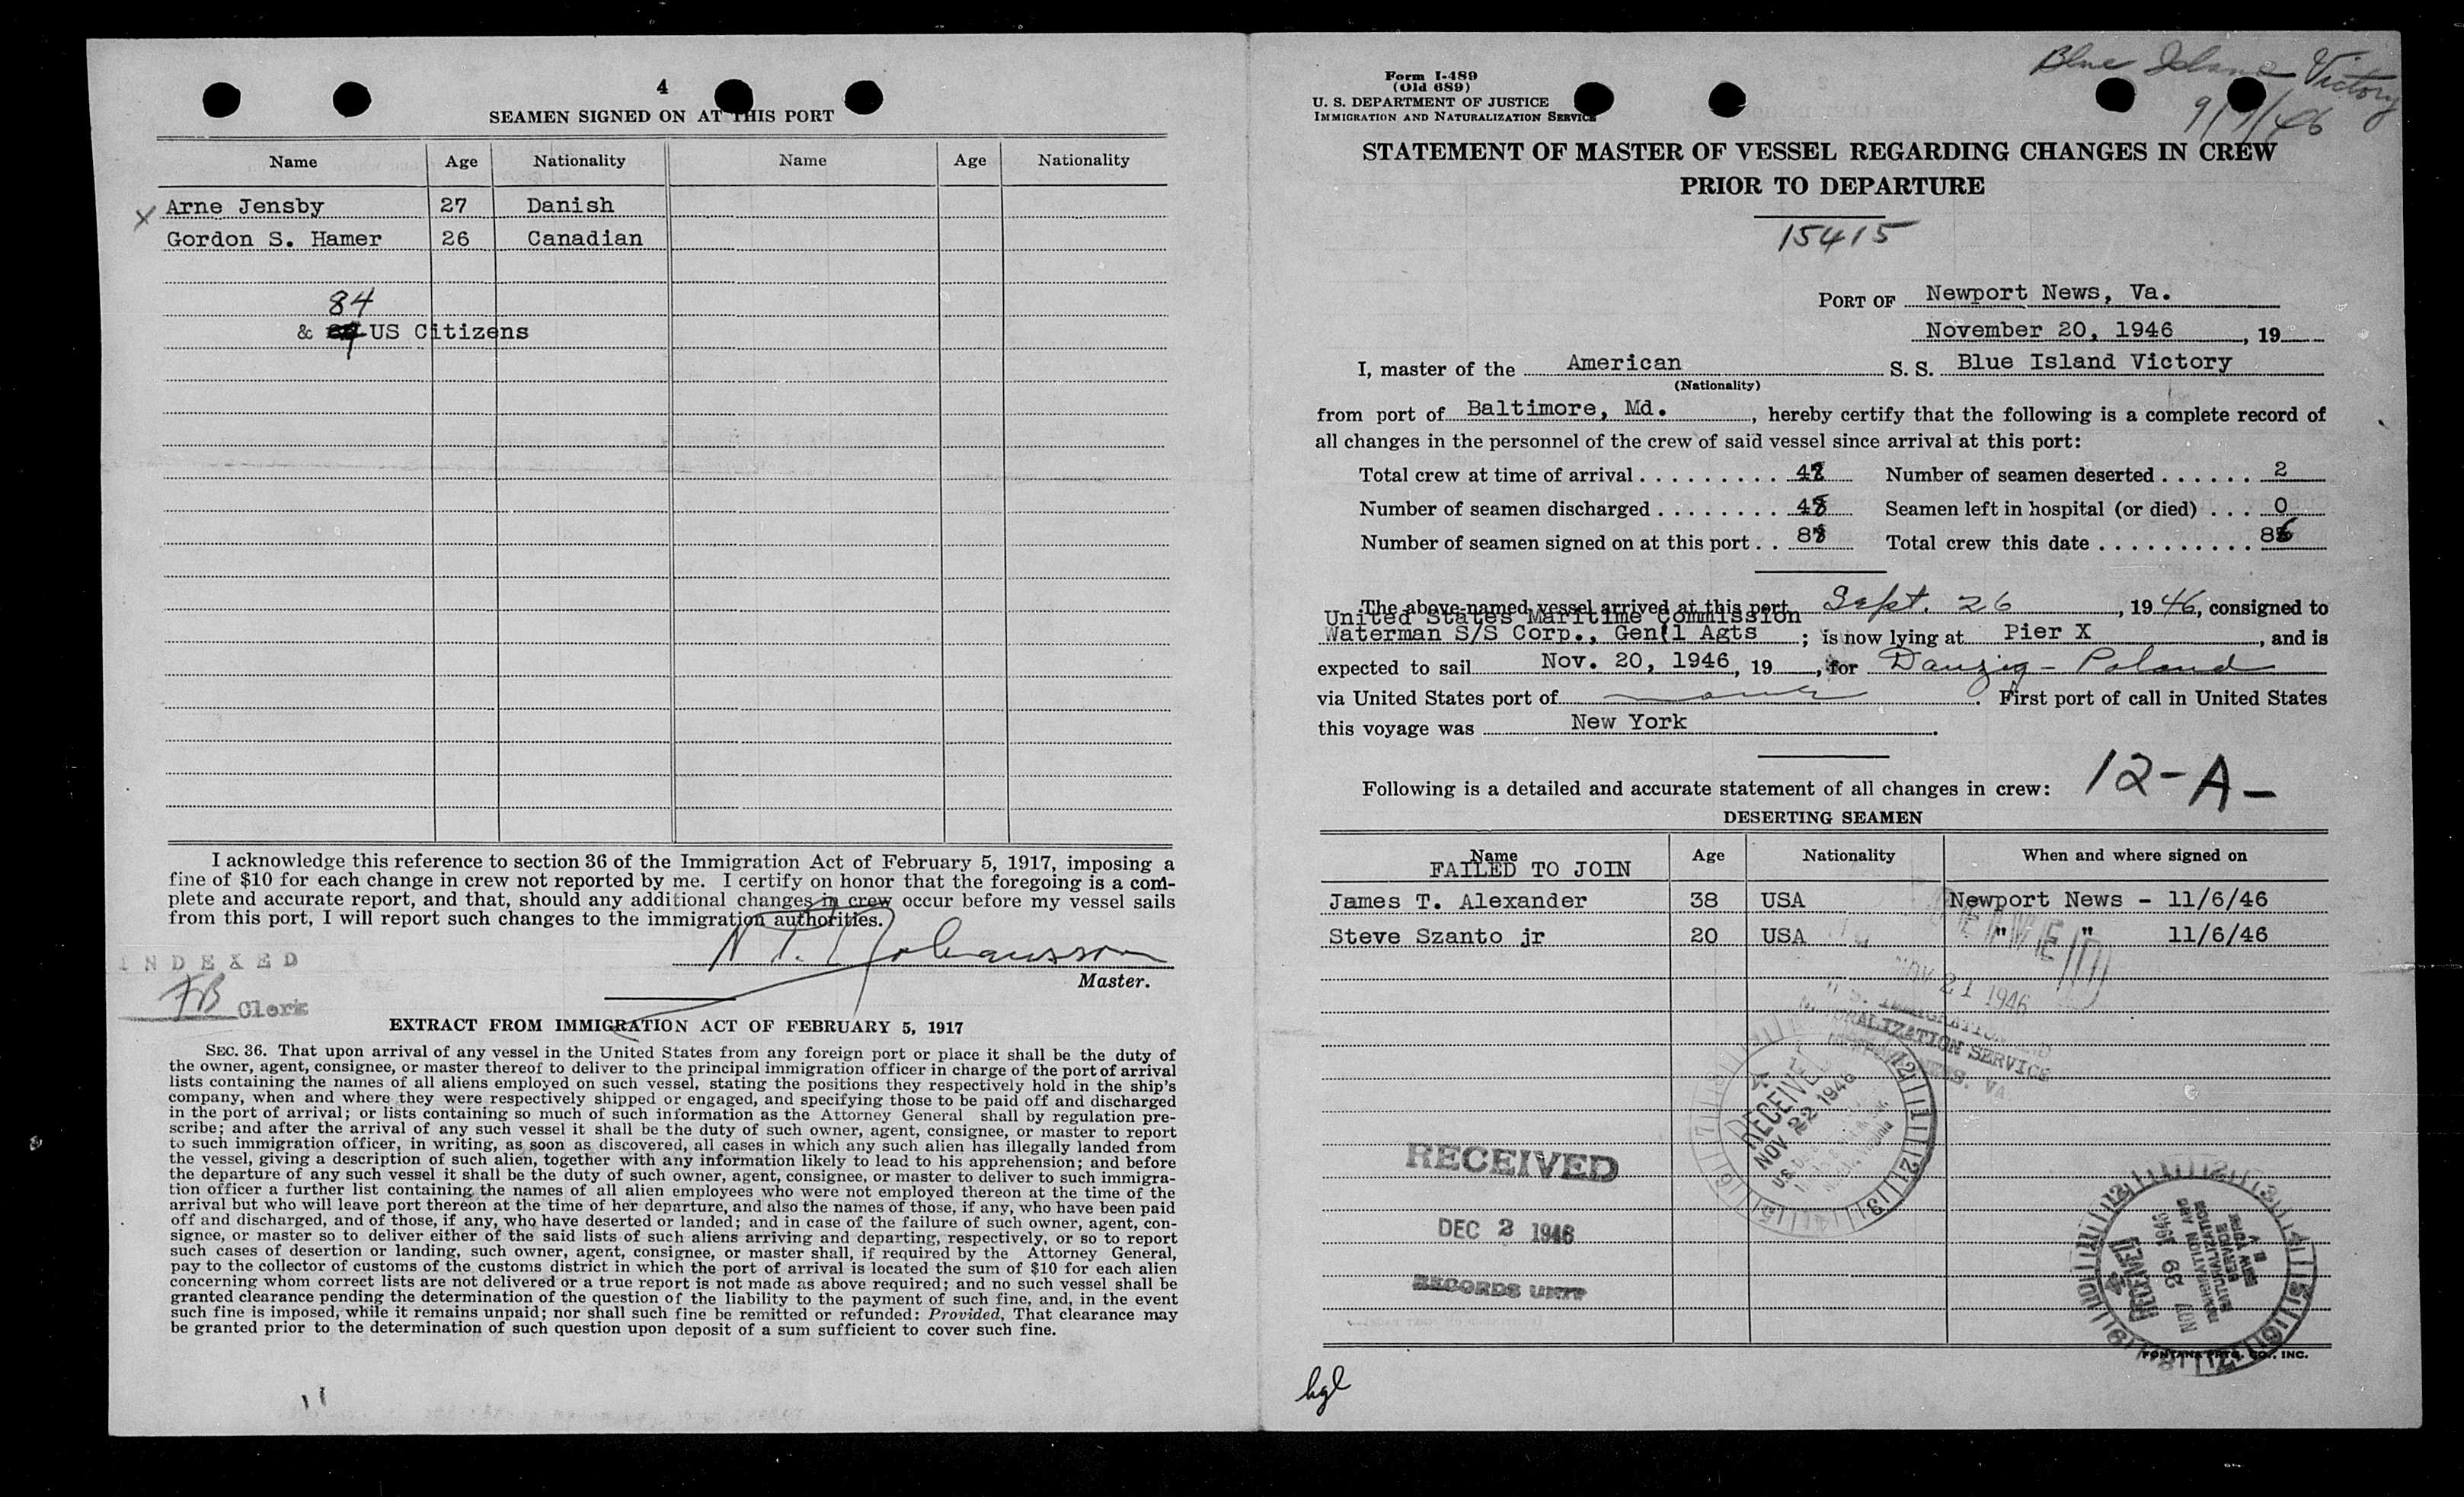 4
SEAMEN SIGNED ON AT THIS PORT
Name Age Nationality Name Age Nationality
X Arne Jensby 27 Danish
Gordon S. Hamer 26 Canadian
84
& US Citizens
I acknowledge this reference to section 36 of the Immigration Act of February 5, 1917, imposing a
fine of $10 for each change in crew not reported by me. I certify on honor that the foregoing is a com-
plete and accurate report, and that, should any additional changes in crew occur before my vessel sails
from this port, I will report such changes to the immigration authorities.
Johansson
Master.
INDEXED
FB Clerk
EXTRACT FROM IMMIGRATION ACT OF FEBRUARY 5, 1917
SEC. 36. That upon arrival of any vessel in the United States from any foreign port or place it shall be the duty of
the owner, agent, consignee, or master thereof to deliver to the principal immigration officer in charge of the port of arrival
lists containing the names of all aliens employed on such vessel, stating the positions they respectively hold in the ship's
company, when and where they were respectively shipped or engaged, and specifying those to be paid off and discharged
in the port of arrival; or lists containing so much of such information as the Attorney General shall by regulation pre-
scribe; and after the arrival of any such vessel it shall be the duty of such owner, agent, consignee, or master to report
to such immigration officer, in writing, as soon as discovered, all cases in which any such alien has illegally landed from
the vessel, giving a description of such alien, together with any information likely to lead to his apprehension; and before
the departure of any such vessel it shall be the duty of such owner, agent, consignee, or master to deliver to such immigra-
tion officer a further list containing the names of all alien employees who were not employed thereon at the time of the
arrival but who will leave port thereon at the time of her departure, and also the names of those, if any, who have been paid
off and discharged, and of those, if any, who have deserted or landed; and in case of the failure of such owner, agent, con-
signee, or master so to deliver either of the said lists of such aliens arriving and departing, respectively, or so to report
such cases of desertion or landing, such owner, agent, consignee, or master shall, if required by the Attorney General,
pay to the collector of customs of the customs district in which the port of arrival is located the sum of $10 for each alien
concerning whom correct lists are not delivered or a true report is not made as above required; and no such vessel shall be
granted clearance pending the determination of the question of the liability to the payment of such fine, and, in the event
such fine is imposed, while it remains unpaid; nor shall such fine be remitted or refunded: Provided, That clearance may
be granted prior to the determination of such question upon deposit of a sum sufficient to cover such fine.
Form I-489
(Old 689)
U. S. DEPARTMENT OF JUSTICE
IMMIGRATION AND NATURALIZATION SERVICE
Blue Island Victory
STATEMENT OF MASTER OF VESSEL REGARDING CHANGES IN CREW
PRIOR TO DEPARTURE
15415
PORT OF Newport News, Va.
November 20, 1946, 19
I, master of the American S. S. Blue Island Victory
(Nationality)
from port of Baltimore, Md., hereby certify that the following is a complete record of
all changes in the personnel of the crew of said vessel since arrival at this port:
Total crew at time of arrival . . . . . . . . . . Number of seamen deserted . . . . . . 2
Number of seamen discharged . . . . . . . . Seamen left in hospital (or died) . . . 0
Number of seamen signed on at this port . . Total crew this date . . . . . . . . . . 86
The above-named vessel arrived at this port Sept. 26, 1946, consigned to
United States Maritime Commission
Waterman S/S Corp., Gen'l Agts; is now lying at Pier X, and is
expected to sail Nov. 20, 1946, 19, for Danzig - Poland
via United States port of none. First port of call in United States
this voyage was New York.
12-A-
Following is a detailed and accurate statement of all changes in crew:
DESERTING SEAMEN
Name Age Nationality When and where signed on
FAILED TO JOIN
James T. Alexander 38 USA Newport News - 11/6/46
Steve Szanto jr 20 USA " " 11/6/46
RECEIVED
NOV 21 1946
U. S. IMMIGRATION AND
NATURALIZATION SERVICE
NEWPORT NEWS. VA
RECEIVED
NOV 22 1946
RECEIVED
DEC 2 1946
RECORDS UNIT
RECEIVED
NOV 29 1946
IMMIGRATION AND
NATURALIZATION
SERVICE
NEW YORK
N. Y.
FONTANA PRTG. CO., INC.
hgl